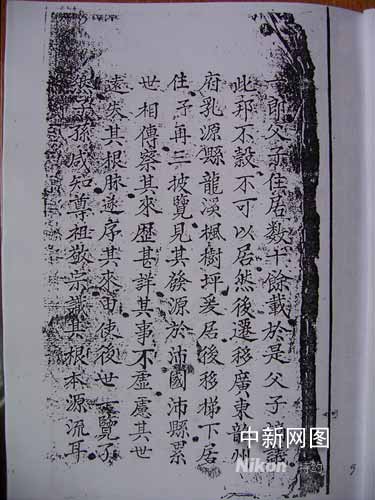 一郎父子住居数十餘載於是父子議
此邦不穀不可以居然後遷移廣東韶州
府乳源縣龍溪楓樹坪爰居後移梯下居
住予再三披覽見其發源於沛國沛縣累
世相傳察其來歷甚詳其事不虛慮其世
遠失其根脉遂序其來由使後世一覽了
然子孫咸知尊祖敬宗識其根本源流耳
中新网图
Nikon